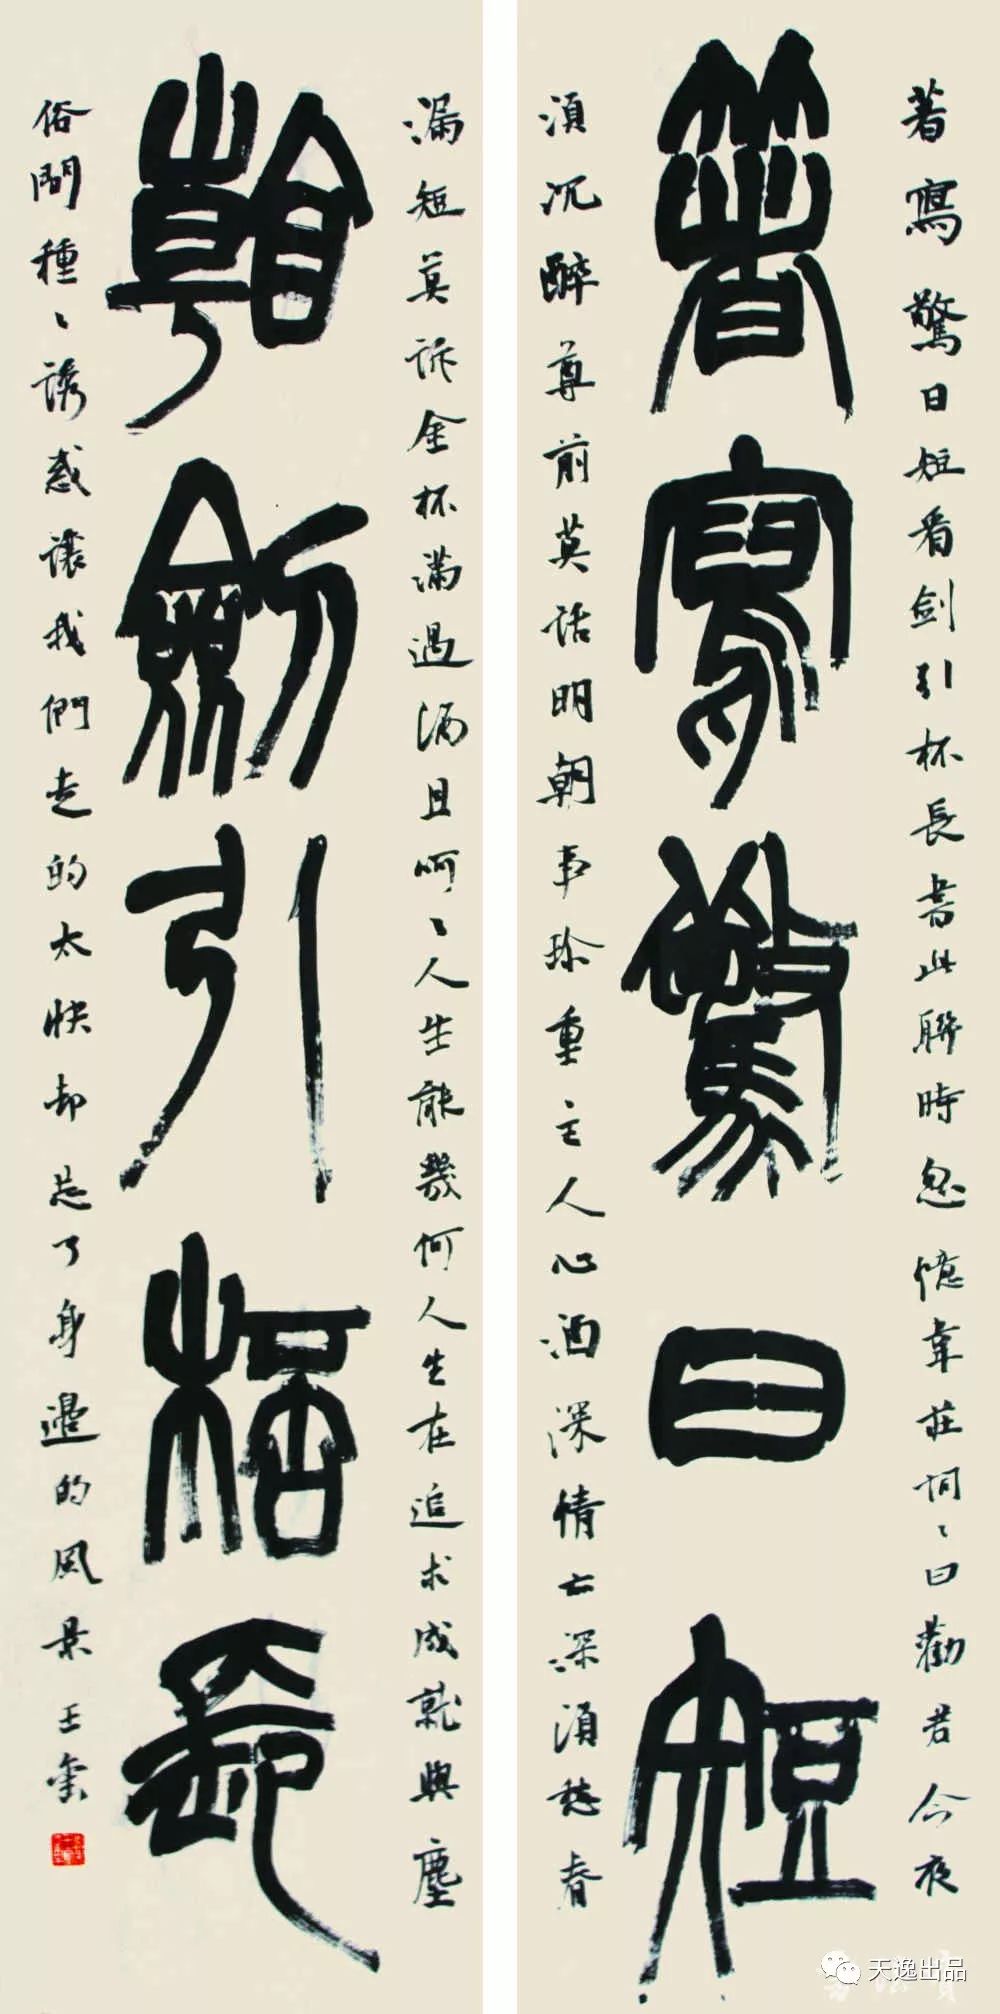 箸寫驚日短
著寫驚日短看劍引杯長書此聯時忽憶韋莊詞〻曰勸君今夜
須沉醉尊前莫話明朝事珍重主人心酒深情亦深須愁春
看劍引桮長
漏短莫訴金杯滿遇酒且呵〻人生能幾何人生在追求成就與塵
俗間種〻誘惑讓我們走的太快却忘了身邊的風景 王
天逸出品